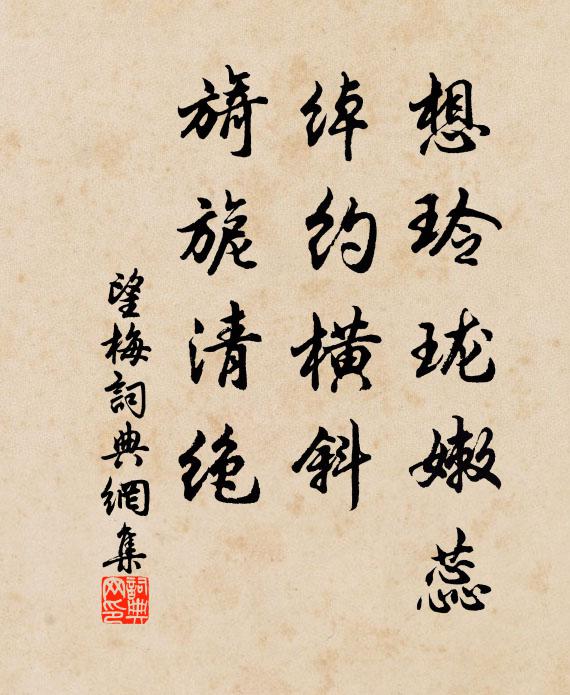 想玲珑嫩蕊
绰约横斜
旖旎清绝
望梅詞典網集
詞典网印